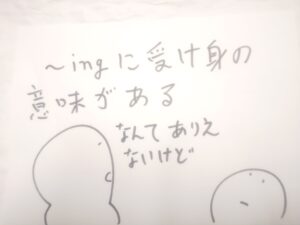 ～ingに受け身の
意味がある
なんてありえ
ないけど